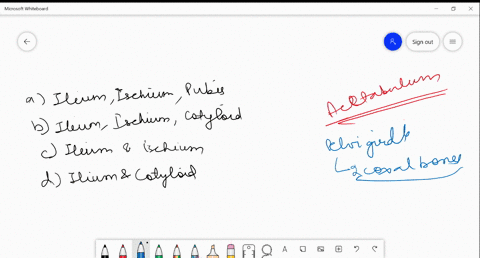 Microsoft Whiteboard
Sign out
a) Ileum, Ischium, Pubis
b) Ileum, Ischium, Cotyloid
c) Ileum & ischium
d) Ilium & Cotyloid
Acetabulum
Elvi girdle
↳ 2 coxal bones